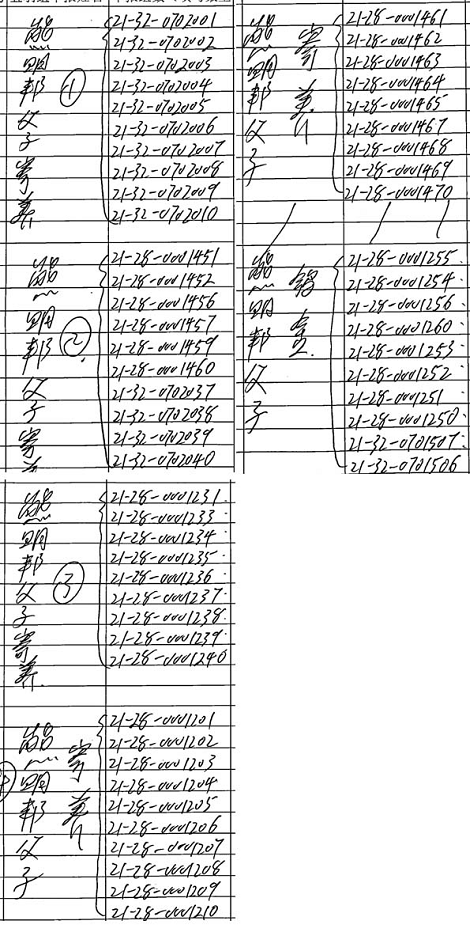 明邦父子寄养
①
21-32-0702001
21-32-0702002
21-32-0702003
21-32-0702004
21-32-0702005
21-32-0702006
21-32-0702007
21-32-0702008
21-32-0702009
21-32-0702010
明邦父子寄养
②
21-28-0001451
21-28-0001452
21-28-0001456
21-28-0001457
21-28-0001459
21-28-0001460
21-32-0702037
21-32-0702038
21-32-0702039
21-32-0702040
明邦父子寄养
③
21-28-0001231
21-28-0001233
21-28-0001234
21-28-0001235
21-28-0001236
21-28-0001237
21-28-0001238
21-28-0001239
21-28-0001240
明邦父子
寄养
21-28-0001201
21-28-0001202
21-28-0001203
21-28-0001204
21-28-0001205
21-28-0001206
21-28-0001207
21-28-0001208
21-28-0001209
21-28-0001210
明邦父子
寄养
21-28-0001461
21-28-0001462
21-28-0001463
21-28-0001464
21-28-0001465
21-28-0001467
21-28-0001468
21-28-0001469
21-28-0001470
明邦父子
21-28-0001255
21-28-0001254
21-28-0001256
21-28-0001260
21-28-0001253
21-28-0001252
21-28-0001251
21-28-0001250
21-32-0701507
21-32-0701506